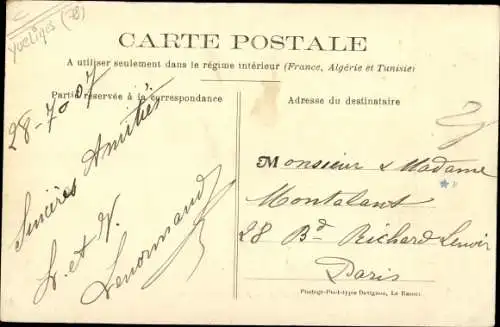 Yvelines (78)
CARTE POSTALE
A utiliser seulement dans le régime intérieur (France, Algérie et Tunisie)
Partie réservée à la correspondance
Adresse du destinataire
28-7-07
Sincères Amitiés
L. et V.
Lenormand
Monsieur & Madame
Montalant
28 Bd Richard Lenoir
Paris